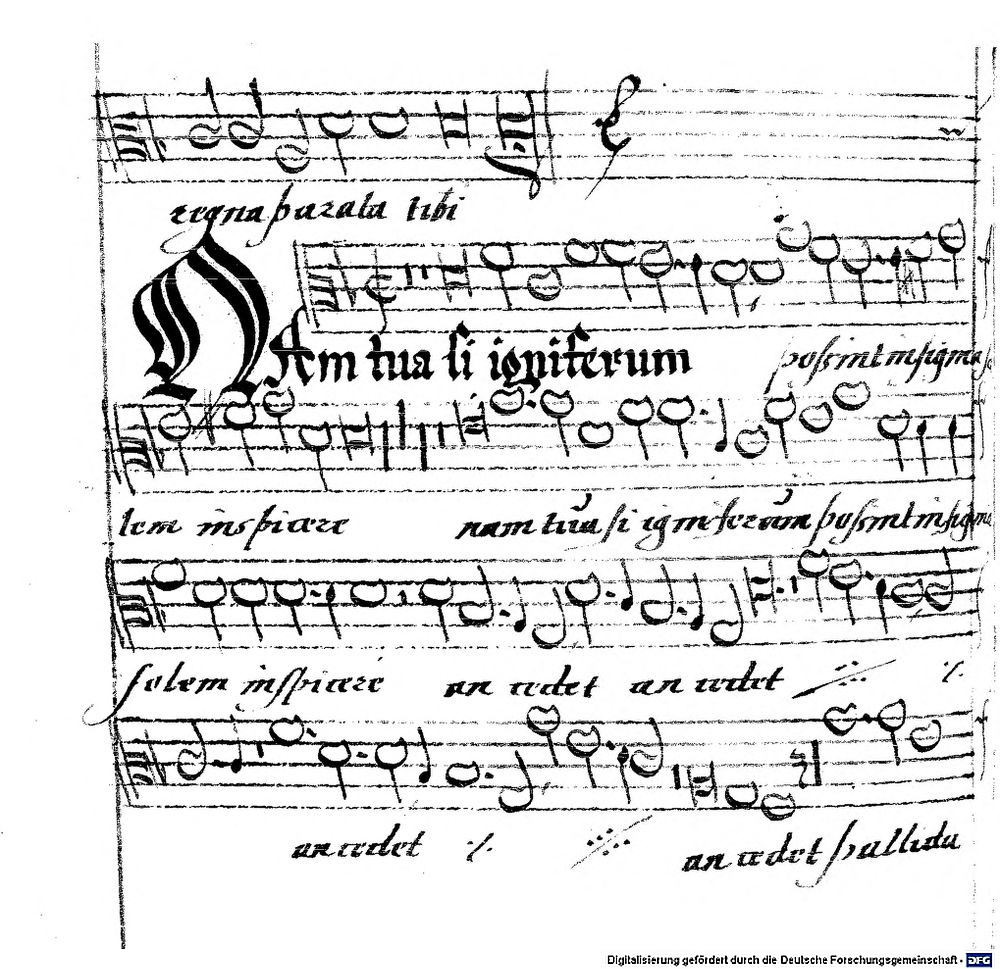 regna parata tibi
NAm tua si igniferum possint insigna
lem inspicere nam tua si igniferum possint insigna
solem inspicere an cedet an cedet
an cedet an cedet pallida
Digitalisierung gefördert durch die Deutsche Forschungsgemeinschaft - DFG